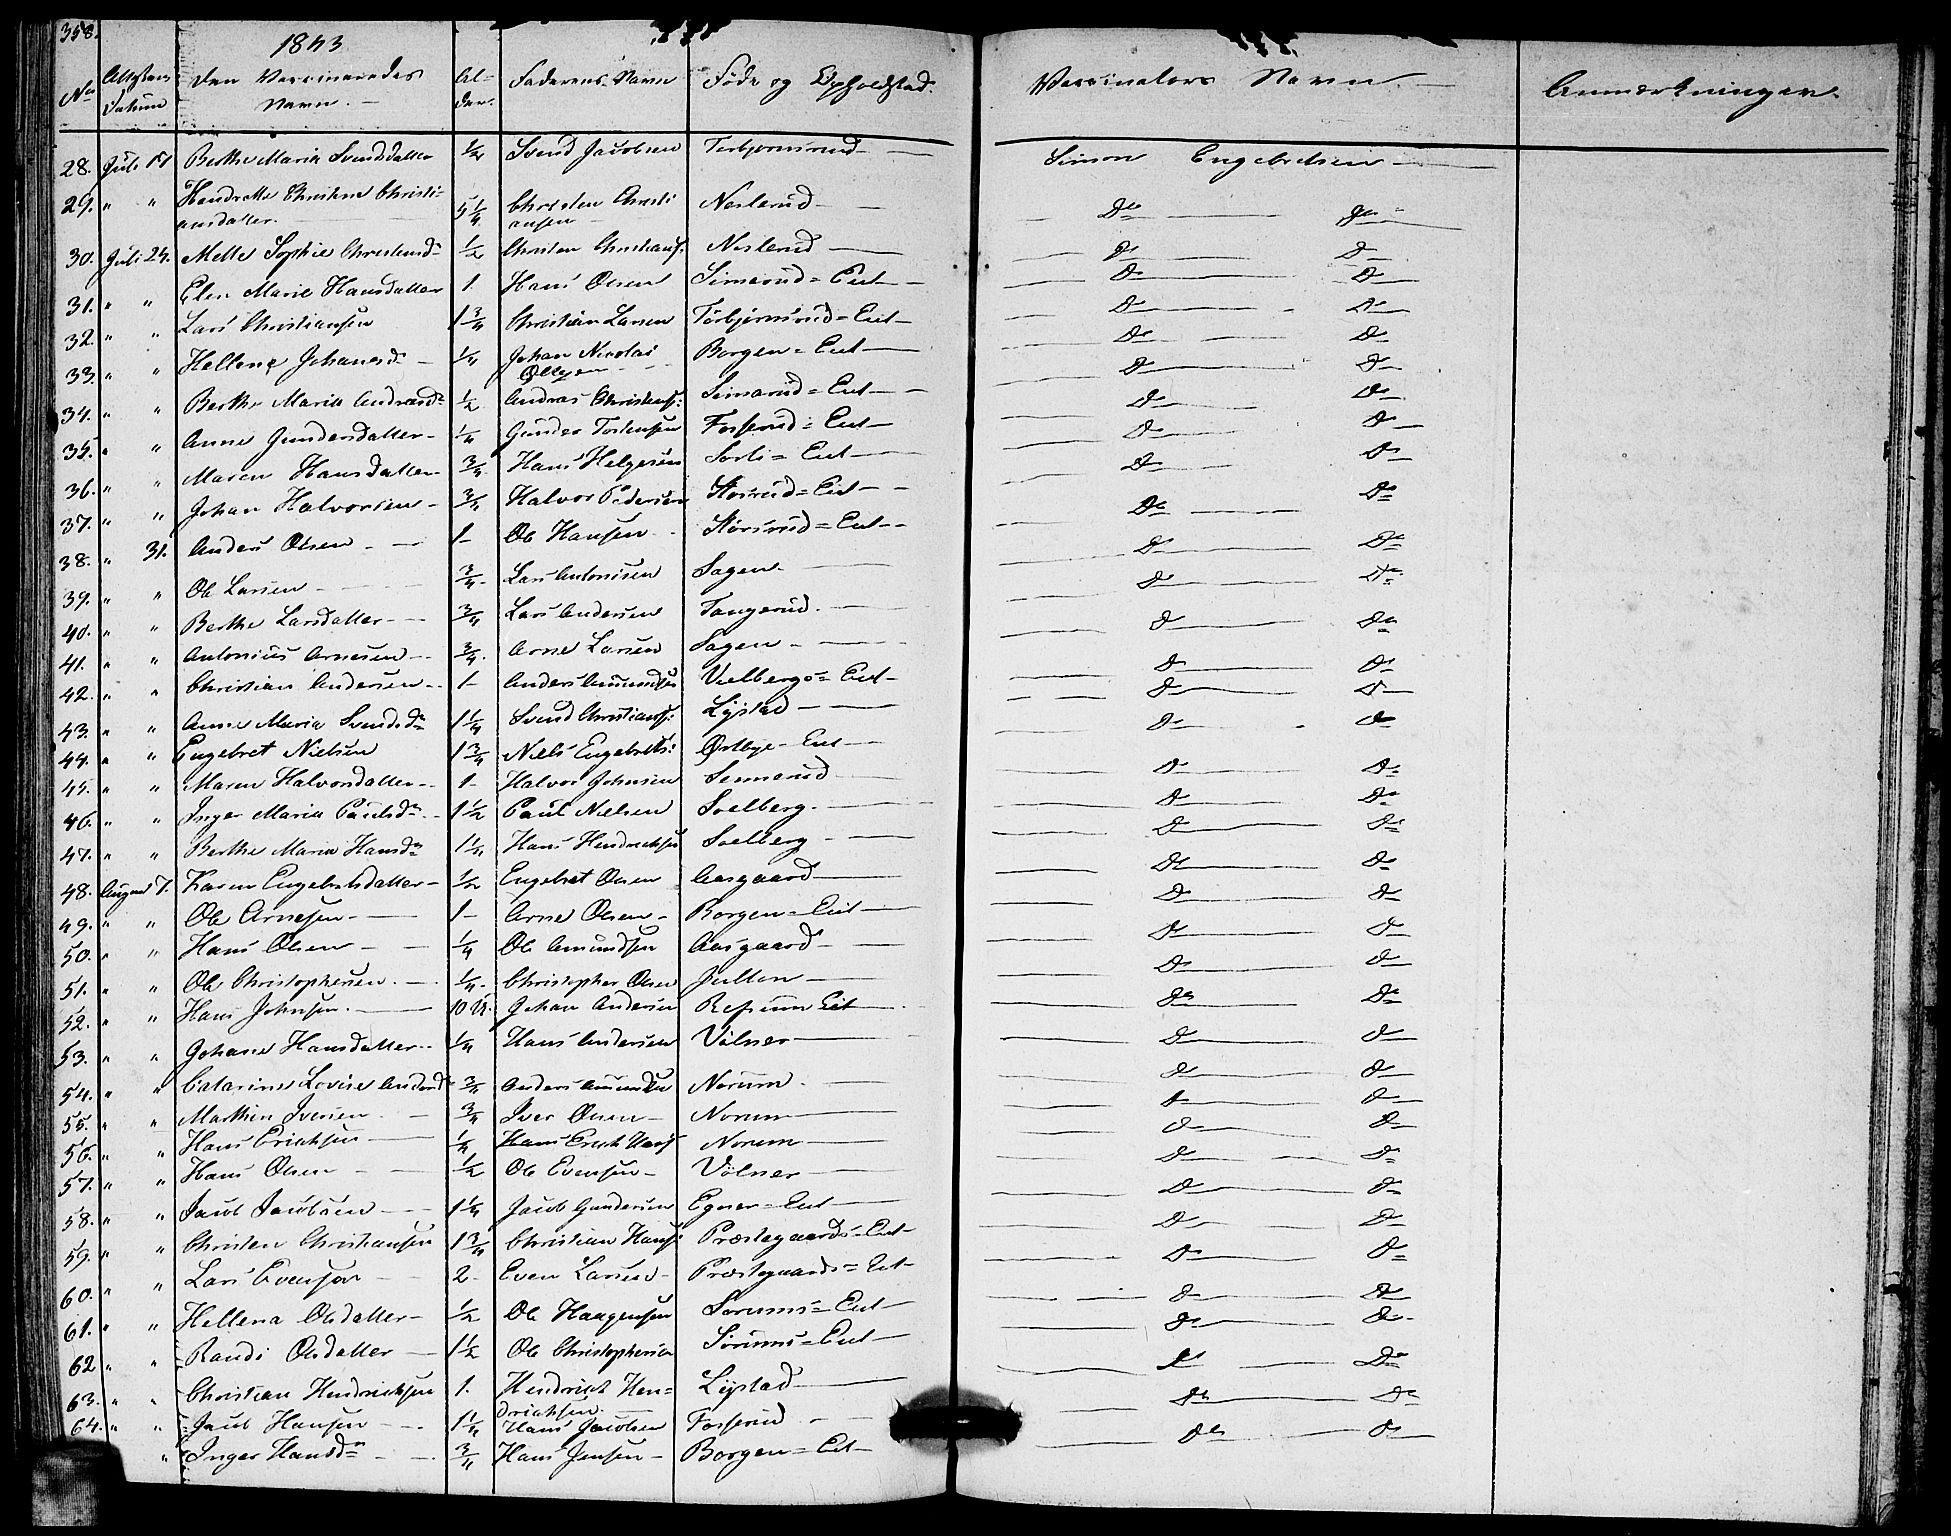 358.
1843
No Attestens Datum Den Vaccineredes Navn. Alder. Faderens Navn Føde og Opholdstad. Vaccinators Navn. Anmærkninger.
28. Juli 17 Berthe Maria Svendsdatter 1/2 Svend Jacobsen Torbjørnsrud Simon Engebretsen
29. " " Hendrette Christine Christiansdatter. 5 1/4 Christen Christiansen Neslerud Do Do
30. Juli 24. Mette Sophie Christensd 1/2 Christen Christians: Neslerud D D
31. " " Elen Marie Hansdatter 1. Hans Olsen Simerud=Eiet D D
32. " " Lars Christiansen 1 3/4 Christian Larsen Torbjørnsrud=Eiet D D
33. " " Hellene Johansd 1/4 Johan Nicolai Borgen=Eiet D D
34. " " Berthe Maria Andreasd 1/2 Andreas Christians: Simerud=Eiet D D
35. " " Anne Gundersdatter 1/4 Gunder Torstensen Fosserud=Eiet D D
36. " " Maren Hansdatter 3/4 Hans Helgesen Sorli=Eiet D D
37. " " Johan Halvorsen 3/4 Halvor Pedersen Storsrud=Eiet D D
38. " 31. Anders Olsen 1 Ole Hansen Storsrud=Eiet Do Do
39. " " Ole Larsen 3/4 Lars Antonisen Sagen D Do
40. " " Berthe Larsdatter 3/4 Lars Andersen Tangerud. D Do
41. " " Antonius Arnesen 3/4. Arne Larsen Sagen D Do
42. " " Christian Andersen 1 Anders Amundsen Vielbergs=Eiet D D
43. " " Anne Maria Svendsd 1 1/4 Svend Christians: Lystad D D
44. " " Engebret Nielsen 1 3/4 Niels Engebrets: Østbye=Eiet D D
45. " " Maren Halvorsdatter 1 Halvor Johnsen Simerud D D
46. " " Inger Maria Paulsd 1 1/2 Paul Nielsen Soelberg. D D
47. " " Berthe Maria Hansd 1 1/4 Hans Hendrichsen Soelberg D D
48. August 7. Karen Engebretsdatter 1/2 Engebret Olsen Aasgaard D D
49. " " Ole Arnesen 1 Arne Olsen Borgen=Eiet D D
50. " " Hans Olsen 1/4 Ole Amundsen Aasgaard D D
51. " " Ole Christophersen 1/4. Christopher Olsen Jullen D D
52. " " Hans Johnsen 10 U. Johan Andersen Refsum Eiet Do Do
53. " " Johane Hansdatter 1/4 Hans Andersen Vølner D D
54. " " Catarine Lovise Andersd 3/4 Anders Amundsen Norum. D D
55. " " Mathies Iversen 3/4 Iver Olsen Norum D D
56. " " Hans Erichsen 1/4 Hans Erich Hans Norum D D
57. " " Hans Olsen 1/2 Ole Evensen Vølner D D
58. " " Jacob Jacobsen 1 1/4 Jacob Gundersen Egner=Eiet D D
59. " " Christen Christiansen 1 3/4 Christian Hans: Præstegaards=Eiet D D
60. " " Lars Evensen 2 Even Larsen Præstegaards=Eiet D D
61. " " Hellena Olsdatter 1/2 Ole Haagensen Sørums=Eiet D D
62 " " Randi Olsdatter 1 1/2 Ole Christophersen Sørums=Eiet D D
63. " " Christian Hendrichsen 1. Hendrich Hendrichsen. Lystad D Do
64. " " Jacob Hansen 1 1/4 Hans Jacobsen Fosserud Do D
" Inger Hansd 3/4 Hans Jensen Borgen=Eiet Do D